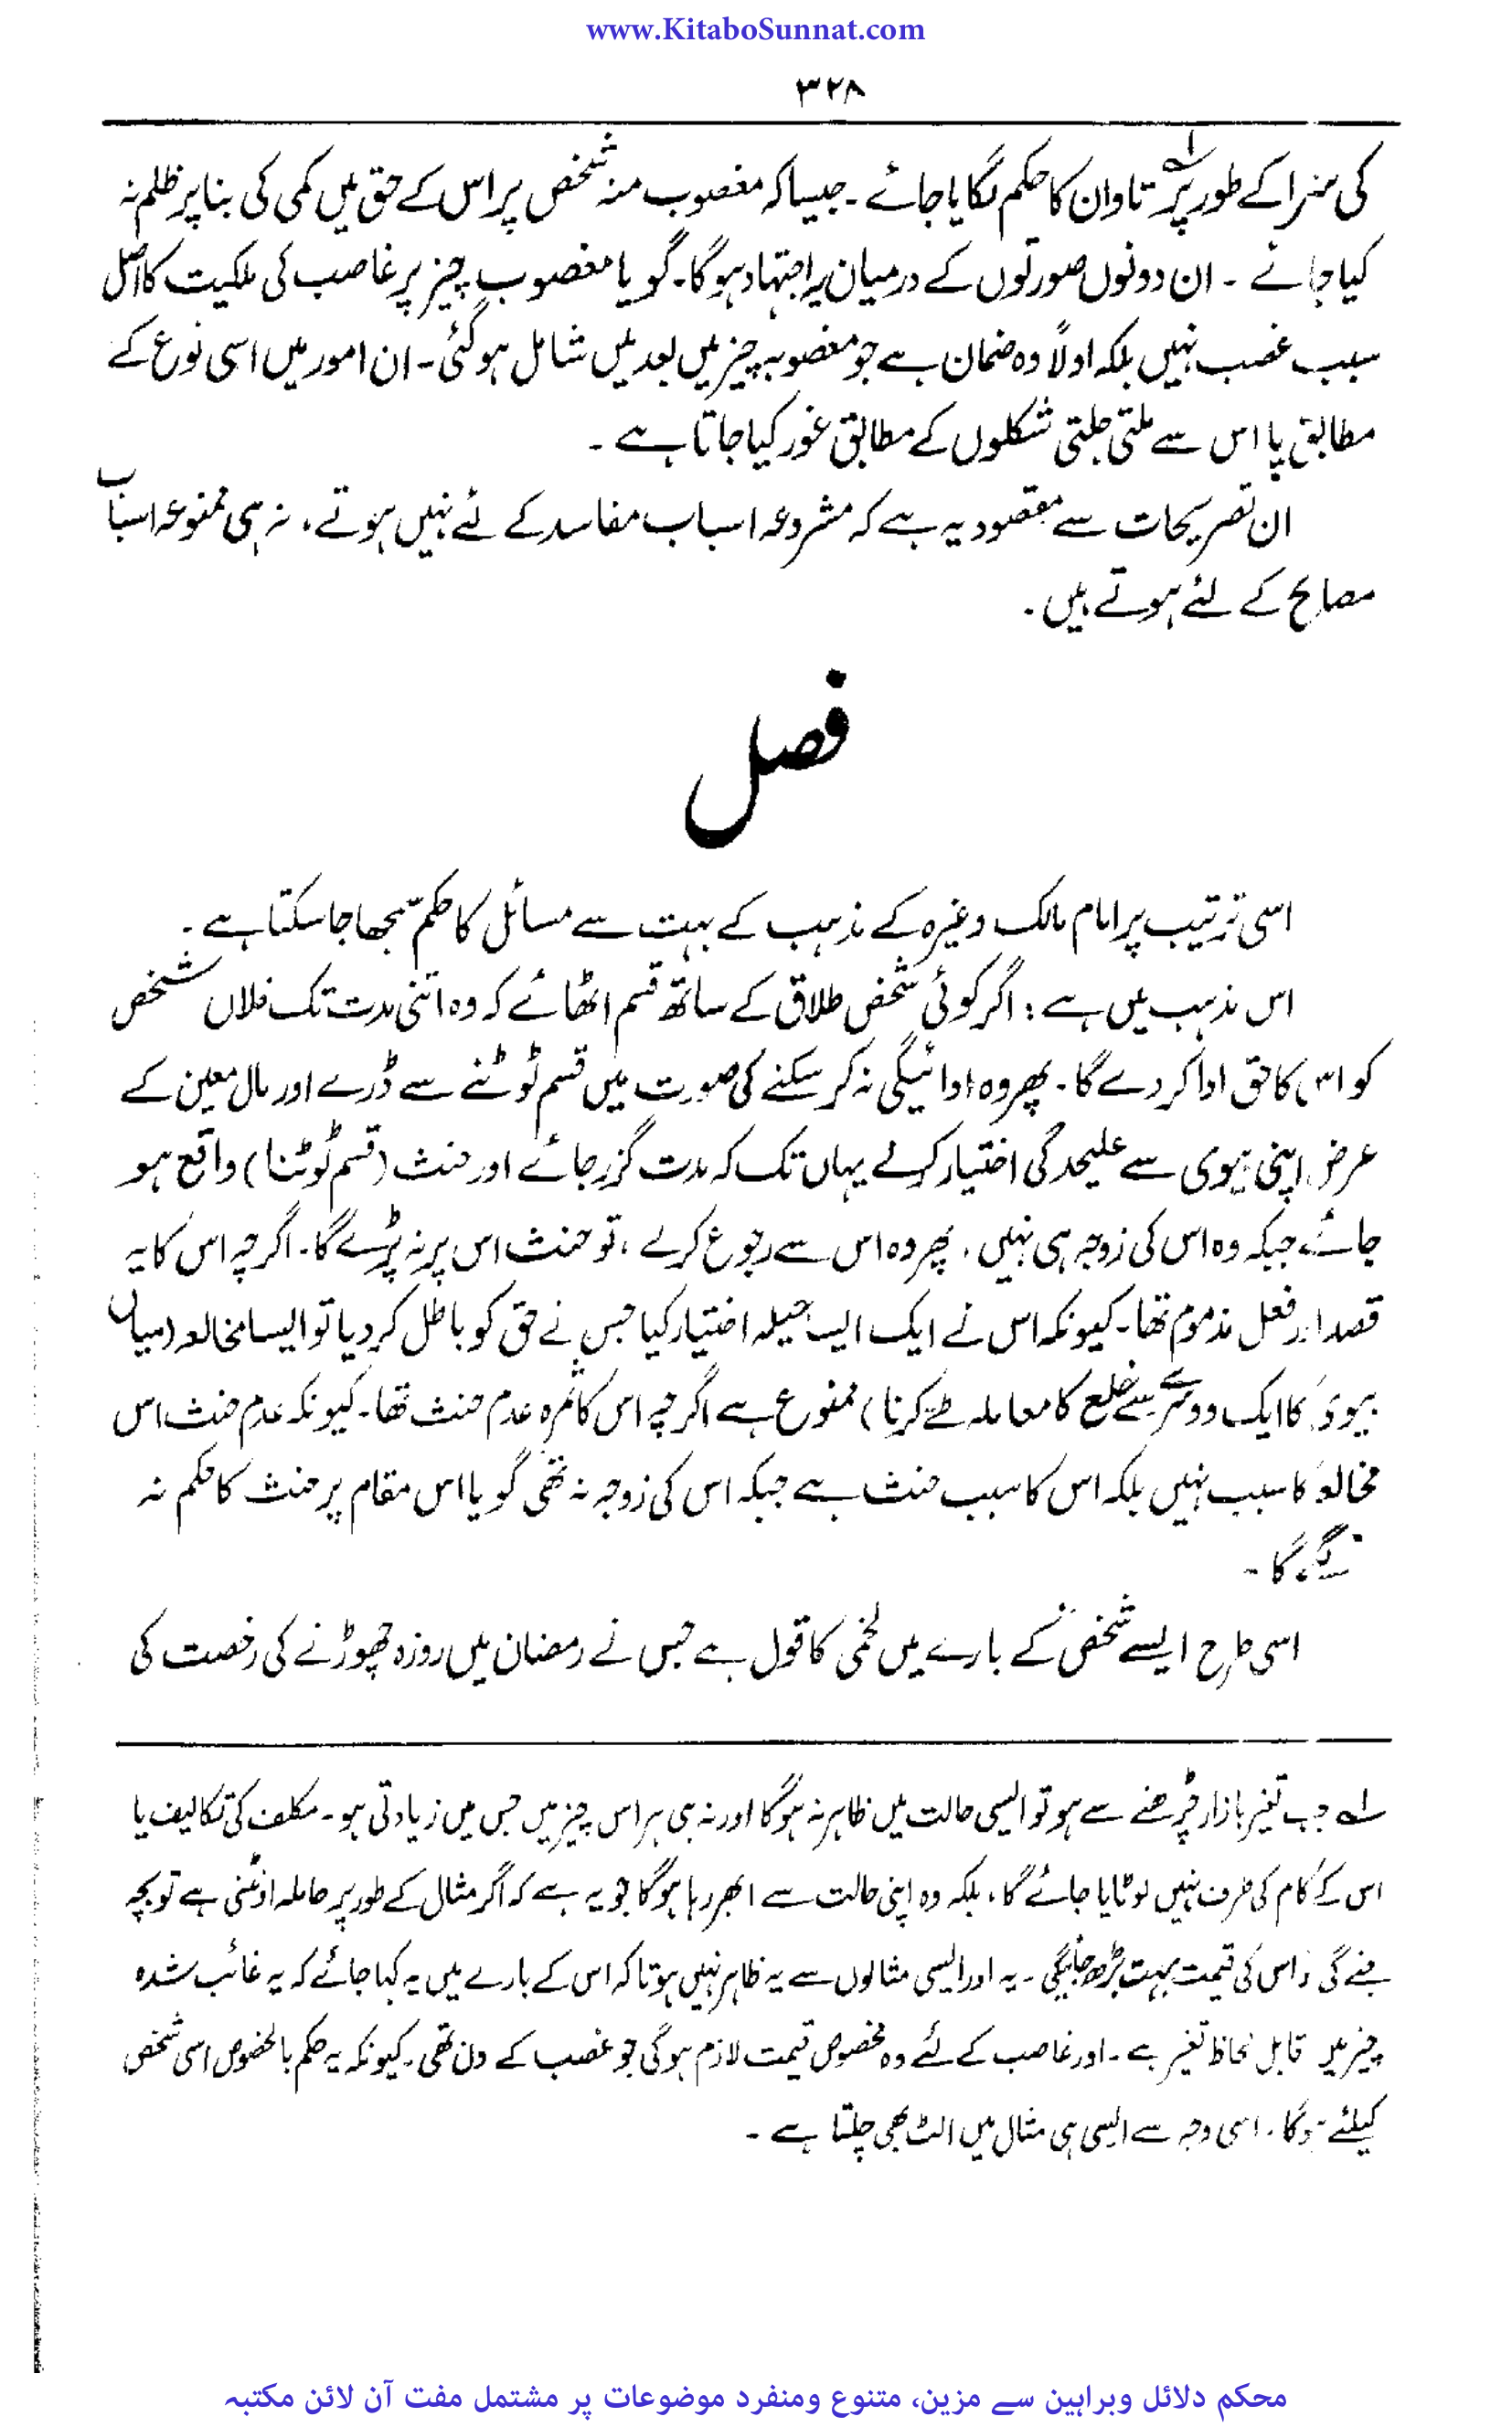 www.KitaboSunnat.com
۳۲۸
کی سزا کے طور پر لہ تاوان کا حکم لگایا جائے ۔ جیسا کہ مغصوب منہ شخص پر اس کے حق میں کمی کی بنا پر ظلم نہ
کیا جائے ۔ ان دونوں صورتوں کے درمیان یہ اجتہاد ہوگا۔ گویا مغصوب چیز پر غاصب کی ملکیت کا اصل
سبب غصب نہیں بلکہ اولاً وہ ضمان ہے جو مغصوبہ چیز میں بعد میں شامل ہوگئی۔ ان امور میں اسی نوع کے
مطابق یا اس سے ملتی جلتی شکلوں کے مطابق غور کیا جاتا ہے ۔
ان تصریحات سے مقصود یہ ہے کہ مشروعہ اسباب مفاسد کے لئے نہیں ہوتے، نہ ہی ممنوعہ اسباب
مصالح کے لئے ہوتے ہیں ۔
فصل
اسی ترتیب پر امام مالک وغیرہ کے مذہب کے بہت سے مسائل کا حکم سمجھا جاسکتا ہے ۔
اس مذہب میں ہے : اگر کوئی شخص طلاق کے ساتھ قسم اٹھائے کہ وہ اتنی مدت تک فلاں شخص
کو اس کا حق ادا کر دے گا ۔ پھر وہ ادائیگی نہ کر سکنے کی صورت میں قسم ٹوٹنے سے ڈرے اور مال معین کے
عرض اپنی بیوی سے علیحدگی اختیار کرلے یہاں تک کہ مدت گزر جائے اور حنث (قسم ٹوٹنا) واقع ہو
جائے جبکہ وہ اس کی زوجہ ہی نہیں ، پھر وہ اس سے رجوع کرلے ، تو حنث اس پر نہ پڑے گا۔ اگرچہ اس کا یہ
قصد اور فعل مذموم تھا۔ کیونکہ اس نے ایک ایسا حیلہ اختیار کیا جس نے حق کو باطل کر دیا تو ایسا مخالعہ (میاں
بیوی کا ایک دوسرے سے خلع کا معاملہ طے کرنا) ممنوع ہے اگرچہ اس کا ثمرہ عدم حنث تھا۔ کیونکہ عدم حنث اس
مخالعہ کا سبب نہیں بلکہ اس کا سبب حنث ہے جبکہ اس کی زوجہ نہ تھی گویا اس مقام پر حنث کا حکم نہ
لگے گا ۔
اسی طرح ایسے شخص کے بارے میں لخمی کا قول ہے جس نے رمضان میں روزہ چھوڑنے کی رخصت کی
لہ جب تغیر بازار چڑھنے سے ہو تو ایسی حالت میں ظاہر نہ ہوگا اور نہ ہی ہر اس چیز میں جس میں زیادتی ہو۔ مکلف کی تکالیف یا
اس کے کام کی طرف نہیں لوٹایا جائے گا، بلکہ وہ اپنی حالت سے ابھر رہا ہوگا جو یہ ہے کہ اگر مثال کے طور پر حاملہ اونٹنی ہے تو بچہ
جنے گی اس کی قیمت بہت بڑھ جائیگی ۔ یہ اور ایسی مثالوں سے یہ ظاہر نہیں ہوتا کہ اس کے بارے میں یہ کہا جائے کہ یہ غائب شدہ
چیز میں قابل لحاظ تغیر ہے ۔ اور غاصب کے لئے وہ مخصوص قیمت لازم ہوگی جو غصب کے دن تھی۔ کیونکہ یہ حکم بالخصوص اسی شخص
کیلئے ہوگا ۔ اسی وجہ سے ایسی ہی مثال میں الٹ بھی چلتا ہے ۔
محکم دلائل وبراہین سے مزین، متنوع ومنفرد موضوعات پر مشتمل مفت آن لائن مکتبہ